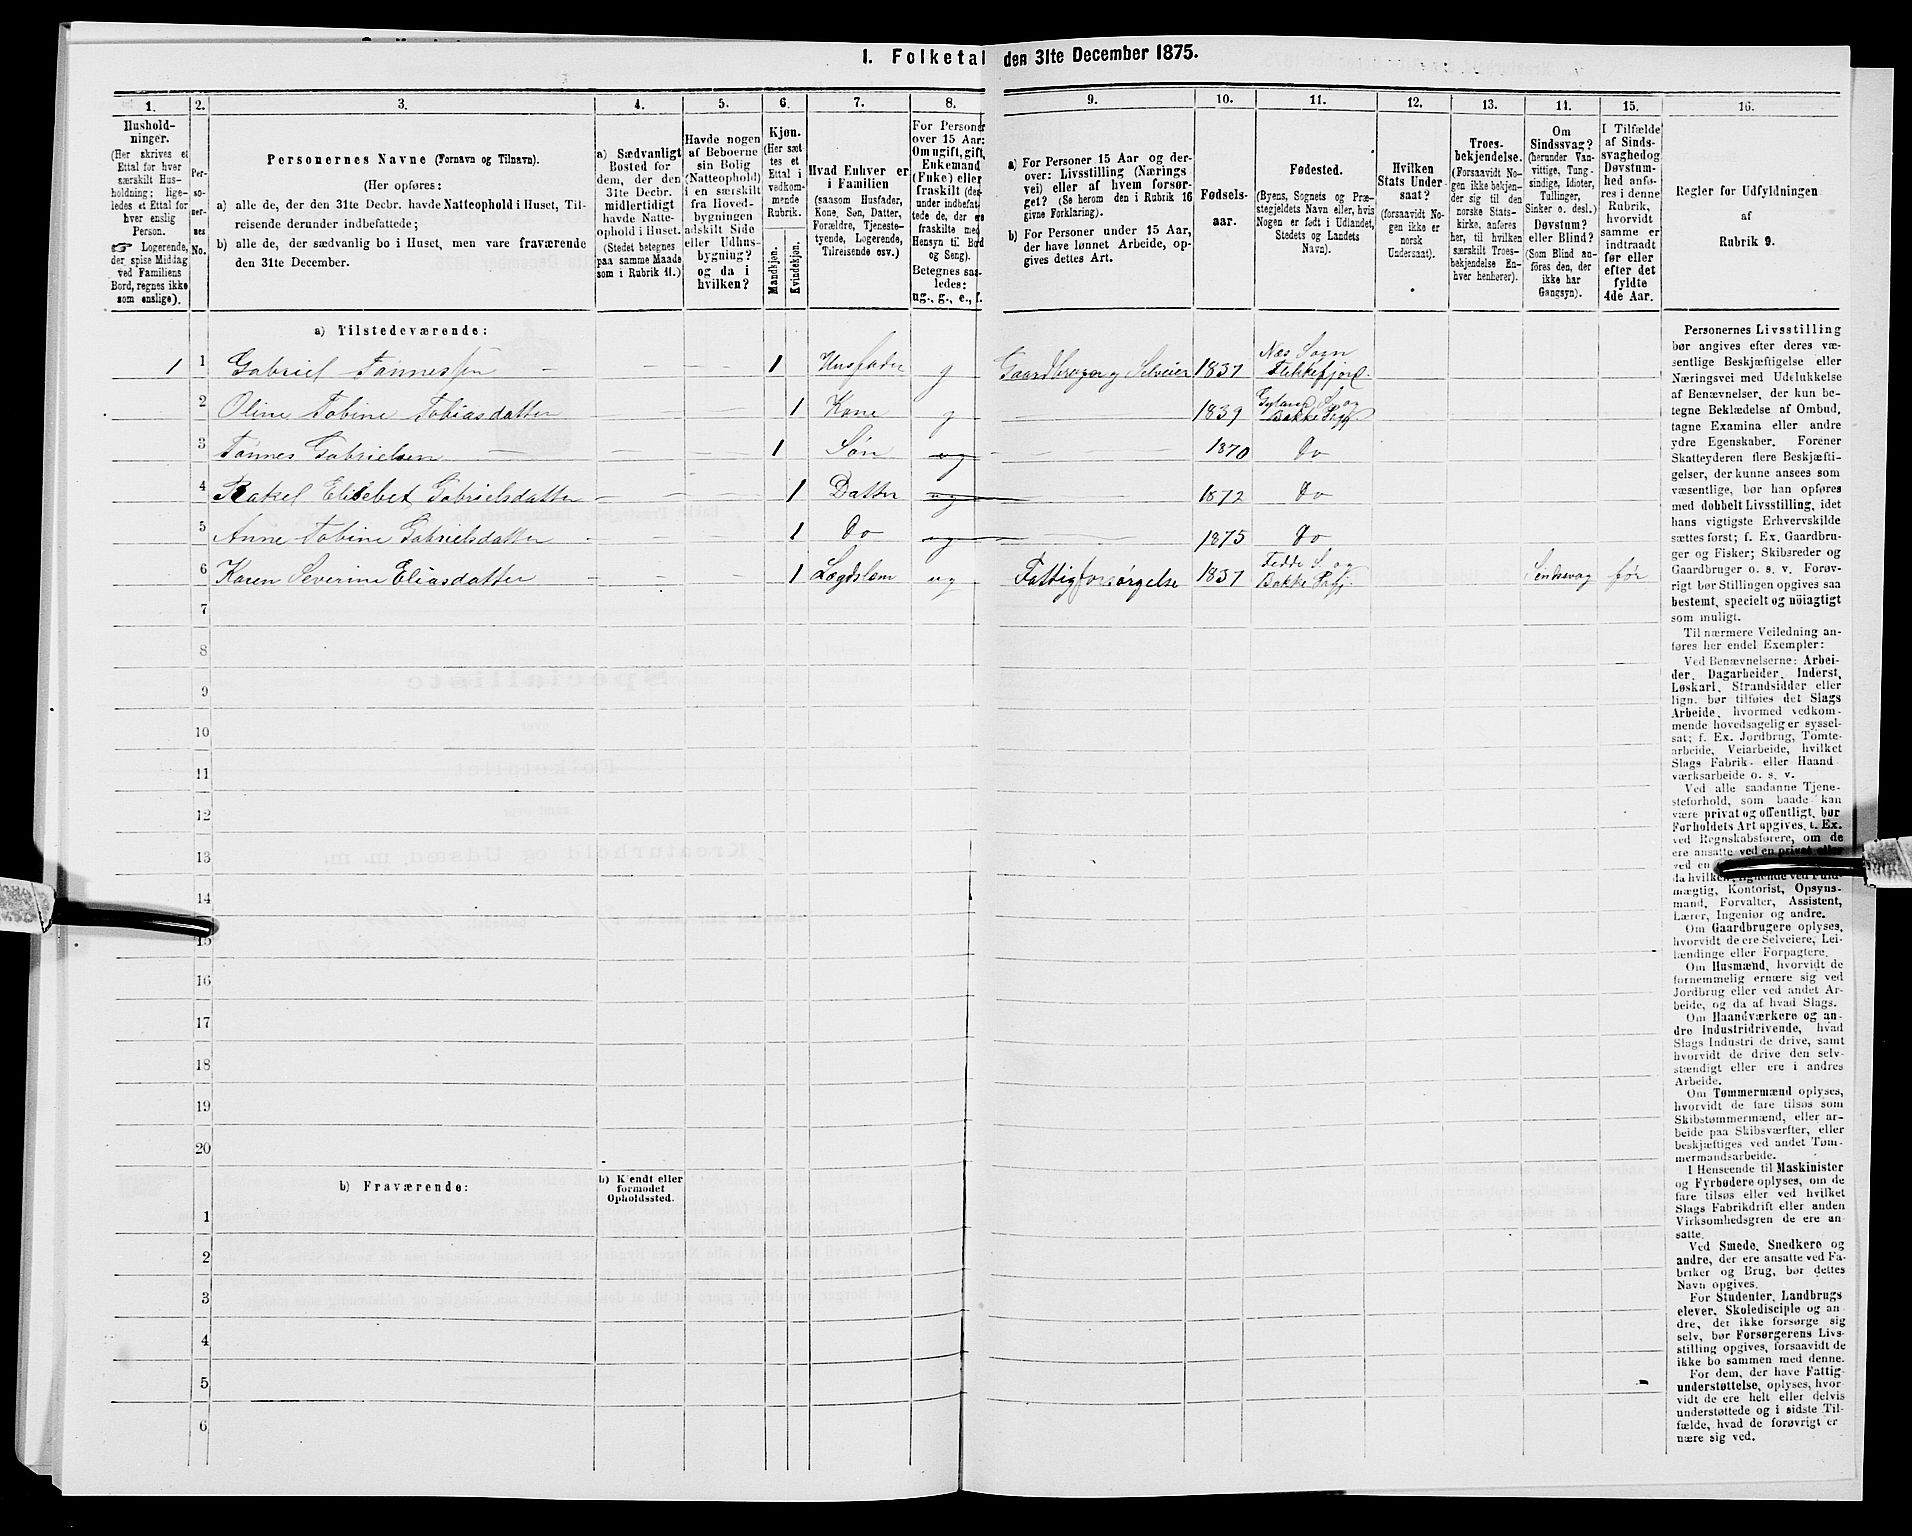 1. Folketal den 31te December 1875.
1. 2. 3. 4. 5. 6. 7. 8. 9. 10. 11. 12. 13. 14. 15. 16.
Hushold-
ninger.
(Her skrives et
Ettal for hver
særskilt Hus-
holdning; lige-
ledes et Ettal for
hver enslig
Person.
☞ Logerende,
der spise Middag
ved Familiens
Bord, regnes ikke
som enslige).
Per-
so-
ner-
nes
No.
Personernes Navne (Fornavn og Tilnavn).
(Her opføres:
a) alle de, der den 31te Decbr. havde Natteophold i Huset, Til-
reisende derunder indbefattede;
b) alle de, der sædvanlig bo i Huset, men vare fraværende
den 31te December.
a) Sædvanligt
Bosted for
dem, der den
31te Decbr.
midlertidigt
havde Natte-
ophold i Huset.
(Stedet betegnes
paa samme Maade
som i Rubrik 11.)
Havde nogen
af Beboerne
sin Bolig
(Natteophold)
i en særskilt
fra Hoved-
bygningen
adskilt Side
eller Udhus-
bygning?
og da i
hvilken?
Kjøn.
(Her sæt-
tes et
Ettal i
vedkom-
mende
Rubrik.
Mandkjøn.
Kvindekjøn.
Hvad Enhver er
i Familien
(saasom Husfader,
Kone, Søn, Datter,
Forældre, Tjeneste-
tyende, Logerende,
Tilreisende osv.)
For Personer
over 15 Aar:
Om ugift, gift,
Enkemand
(Enke) eller
fraskilt (der-
under indbefat-
tede de, der ere
fraskilte med
Hensyn til Bord
og Seng).
Betegnes saa-
ledes:
ug., g., e., f.
a) For Personer 15 Aar og der-
over: Livsstilling (Nærings
vei) eller af hvem forsør-
get? (Se herom den i Rubrik 16
givne Forklaring).
b) For Personer under 15 Aar,
der have lønnet Arbeide, op-
gives dettes Art.
Fødsels-
aar.
Fødested.
(Byens, Sognets og Præ-
stegjeldets Navn eller, hvis
Nogen er født i Udlandet,
Stedets og Landets
Navn).
Hvilken
Stats Under-
saat?
(forsaavidt No-
gen ikke er
norsk
Undersaat).
Troes-
bekjendelse.
(Forsaavidt No-
gen ikke bekjen-
der sig til den
norske Stats-
kirke, anføres
her, til hvilken
særskilt Troes-
bekjendelse En-
hver henhører).
Om
Sindssvag?
(herunder Van-
vittige, Tung-
sindige, Idioter,
Tullinger,
Sinker o. desl.)
Døvstum?
eller Blind?
(Som Blind an-
føres den, der
ikke har
Gangsyn).
I Tilfælde
af Sinds-
svaghedog
Døvstum-
hed anfø-
res i denne
Rubrik,
hvorvidt
samme er
indtraadt
før eller
efter det
fyldte
4de Aar.
Regler for Udfyldningen
af
Rubrik 9.
a) Tilstedeværende:
1 1 Gabriel Tønnessen 1 Husfader g Gaardbruger og Selveier 1837 Næs Sogn Flekkefjord
2 Oline Tobine Tobiasdatter 1 Kone g 1839 S. og Bakke Præg
3 Tønnes Gabrielsen 1 Søn ug 1870 Do
4 Rakel Elisebet Gabrielsdatter 1 Datter ug 1872 Do
5 Anne Tobine Gabrielsdatter 1 Do ug 1875 Do
6 Karen Severine Eliasdatter 1 Lægdslem ug Fattigforsørgelse 1837 Fedde S. og Bakke Prgj. Sindssvag før
7
8
9
10
11
12
13
14
15
16
17
18
19
20
b) Fraværende:
b) Kjendt eller
formodet
Opholdssted.
1
2
3
4
5
6
Personernes Livsstilling
bør angives efter deres væ-
sentlige Beskjæftigelse eller
Næringsvei med Udelukkelse
af Benævnelser, der kun be-
tegne Beklædelse af Ombud,
tagne Examina eller andre
ydre Egenskaber. Forener
Skatteyderen flere Beskjæfti-
gelser, der kunne ansees som
væsentlige, bør han opføres
med dobbelt Livsstilling, idet
hans vigtigste Erhvervskilde
sættes først; f. Ex. Gaardbru-
ger og Fisker; Skibsreder og
Gaardbruger o. s. v. Forøv-
rigt bør Stillingen opgives saa
bestemt, specielt og nöiagtigt
som muligt.
Til nærmere Veiledning an-
føres her endel Exempler:
Ved Benævnelserne: Arbei-
der, Dagarbeider, Inderst,
Løskarl, Strandsidder eller
lign. bør tilføies det Slags
Arbeide, hvormed vedkom-
mende hovedsagelig er syssel-
sat; f. Ex. Jordbrug, Tømte-
arbeide, Veiarbeide, hvilket
Slags Fabrik- eller Haand
værksarbeide o. s. v.
Ved alle saadanne Tjene-
steforhold, som baade kan
være privat og offentligt, bør
Forholdets Art opgives, t. Ex.
ved Regnskabsførere, om de
ere ansatte ved en privat eller
ved en
da hvilken, lignende ved Fuld-
mægtig, Kontorist, Opsyns-
mand, Forvalter, Assistent,
Lærer, Ingeniør og andre.
Om Gaardbrugere oplyses,
hvorvidt de ere Selveiere, Lei-
lændinge eller Forpagtere.
Om Husmænd, hvorvidt de
fornemmelig ernære sig ved
Jordbrug eller ved andet Ar-
beide, og da af hvad Slags.
Om Haandværkere og an-
dre Industridrivende, hvad
Slags Industri de drive, samt
hvorvidt de drive den selv-
stændigt eller ere i andres
Arbeide.
Om Tømmermænd oplyses,
hvorvidt de fare tilsøs som
Skibstømmermænd, eller ar-
beide paa Skibsværfter, eller
beskjæftiges ved andet Tøm-
mermandsarbeide.
I Henseende til Maskinister
og Fyrbødere oplyses, om de
fare tilsøs eller ved hvilket
Slags Fabrikdrift eller anden
Virksomhedsgren de ere an-
satte.
Ved Smede, Snedkere og
andre, der ere ansatte ved Fa-
briker og Brug, bør dettes
Navn opgives.
For Studenter, Landbrugs
elever, Skoledisciple og an-
dre, der ikke forsørge sig
selv, bør Forsørgerens Livs-
stilling opgives, forsaavidt de
ikke bo sammen med denne.
For dem, der have Fattig-
understøttelse, oplyses, hvor-
vidt de ere helt eller delvis
understøttede og i sidste Til-
fælde, hvad de forøvrigt er
nære sig ved.